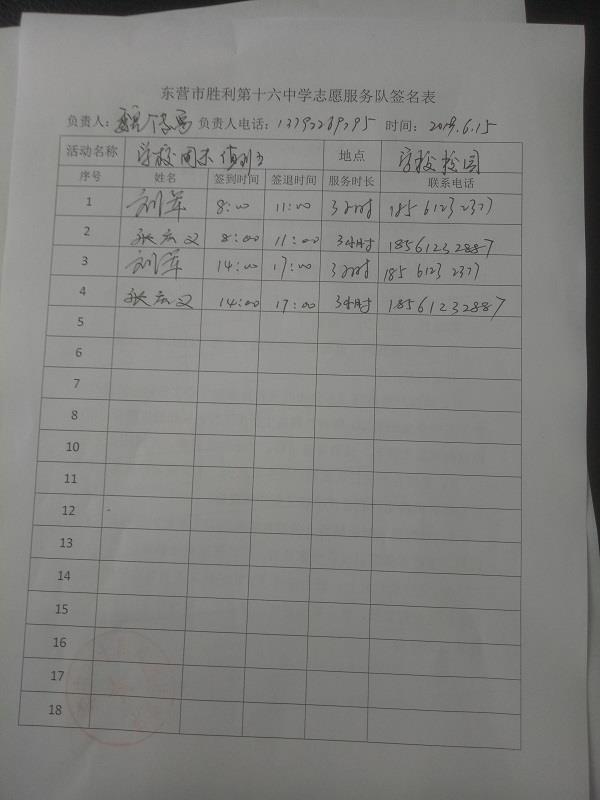 东营市胜利第十六中学志愿服务队签名表
负责人: 负责人电话: 13792269295 时间: 2019.6.15
活动名称 学校周末值班 地点 学校校园
序号 姓名 签到时间 签退时间 服务时长 联系电话
1 刘萍 8:00 11:00 3小时 18561232377
2 张宏义 8:00 11:00 3小时 18561232887
3 刘萍 14:00 17:00 3小时 18561232377
4 张宏义 14:00 17:00 3小时 18561232887
5
6
7
8
10
11
12
13
14
15
16
17
18